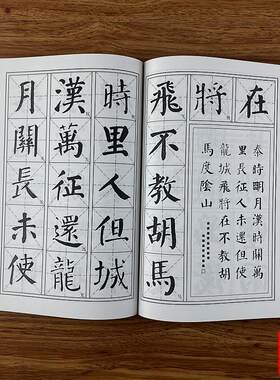 月漢時
關萬里
長征人
未還但
使龍城
飛將在
不
教
胡
馬
秦時明月漢時關萬
里長征人未還但使
龍城飛將在不教胡
馬度陰山